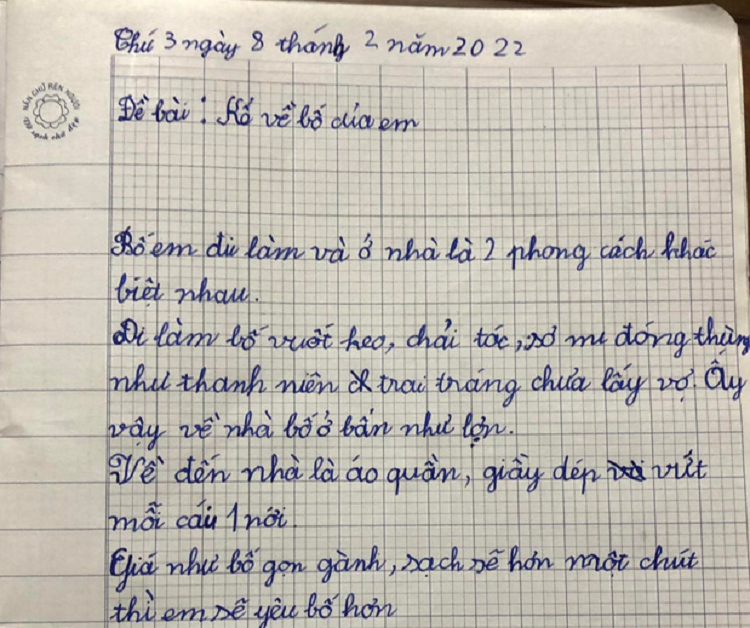 Thứ 3 ngày 8 tháng 2 năm 2022
NẮN CHỮ RÈN NGƯỜI
Đề bài: Kể về bố của em
Bố em đi làm và ở nhà là 2 phong cách khác
biệt nhau.
Đi làm bố vuốt keo, chải tóc, sơ mi đóng thùng
như thanh niên trai tráng chưa lấy vợ. Ấy
vậy về nhà bố ở bẩn như lợn.
Về đến nhà là áo quần, giầy dép vứt
mỗi cái 1 nơi.
Giá như bố gọn gành, sạch sẽ hơn một chút
thì em sẽ yêu bố hơn